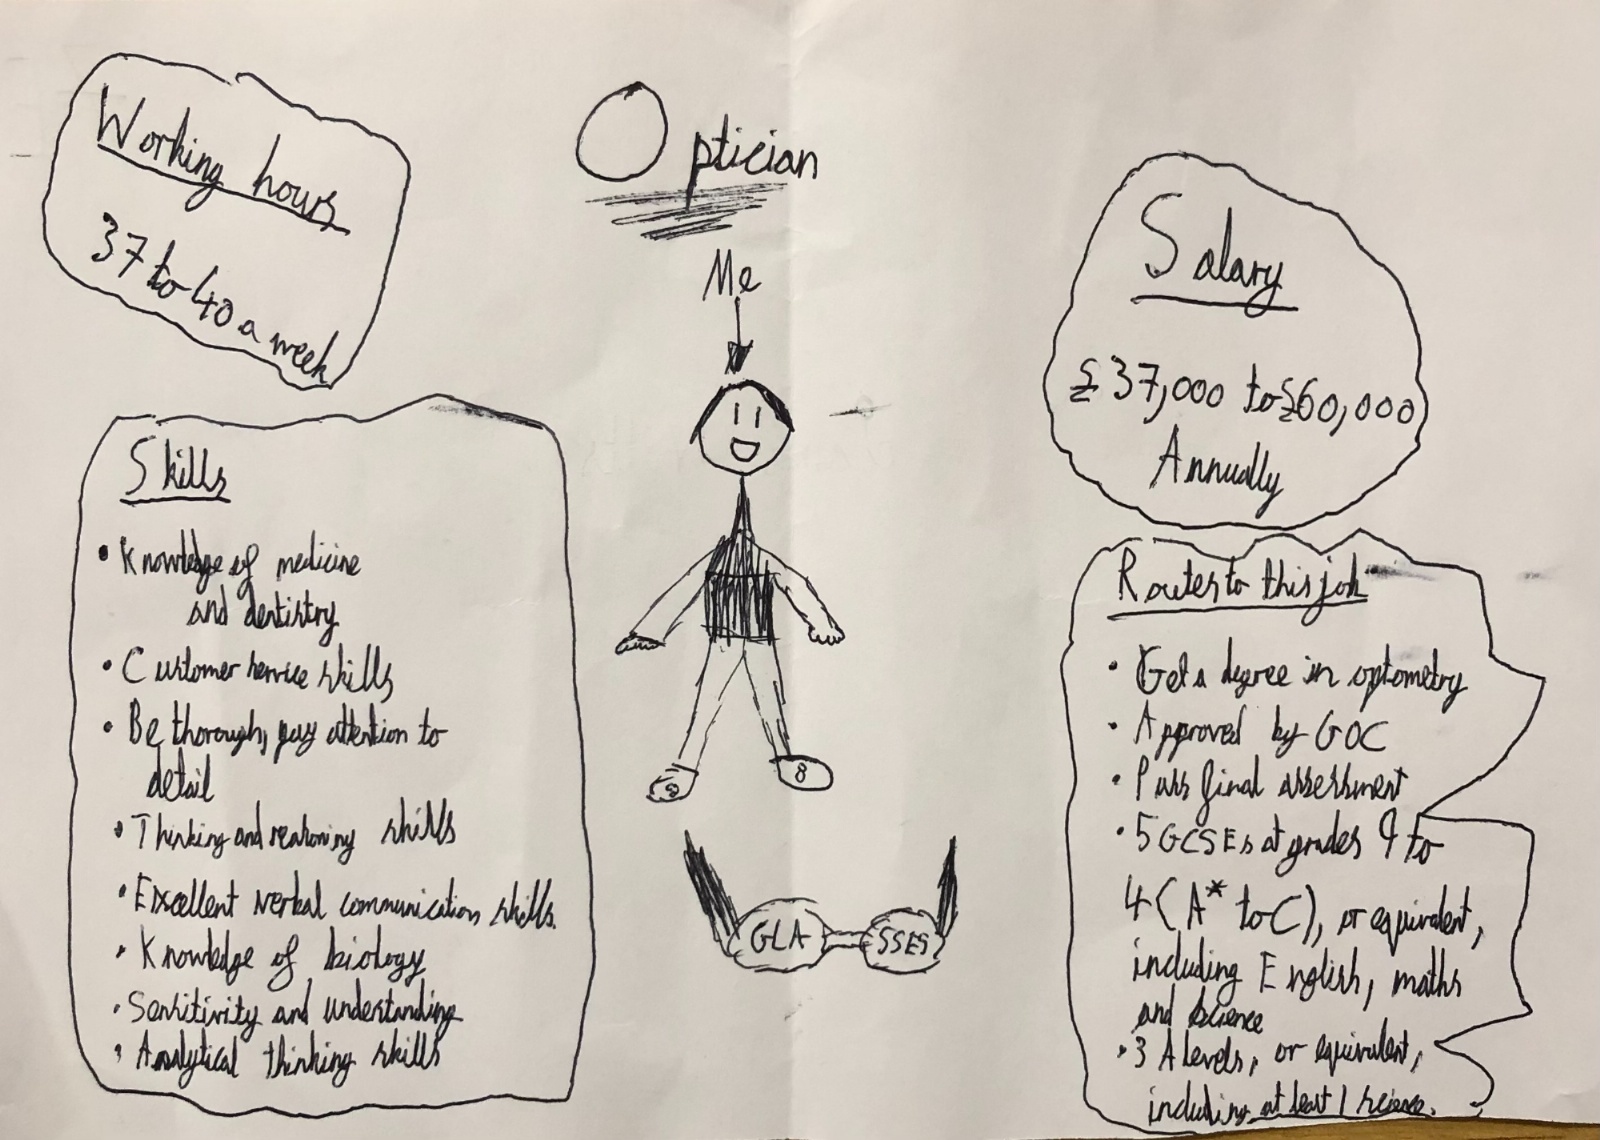 Working hours
37 to 40 a week
Optician
Me
Salary
£37,000 to £60,000
Annually
Skills
• Knowledge of medicine
and dentistry
• Customer service skills
• Be thorough, pay attention to
detail
• Thinking and reasoning skills
• Excellent verbal communication skills.
• Knowledge of biology
• Sensitivity and understanding
• Analytical thinking skills
GLA SSES
Routes to this job
• Get a degree in optometry
• Approved by GOC
• Pass final assessment
• 5 GCSEs at grades 9 to
4 (A* to C), or equivalent,
including English, maths
and science
• 3 A levels, or equivalent,
including at least 1 science.